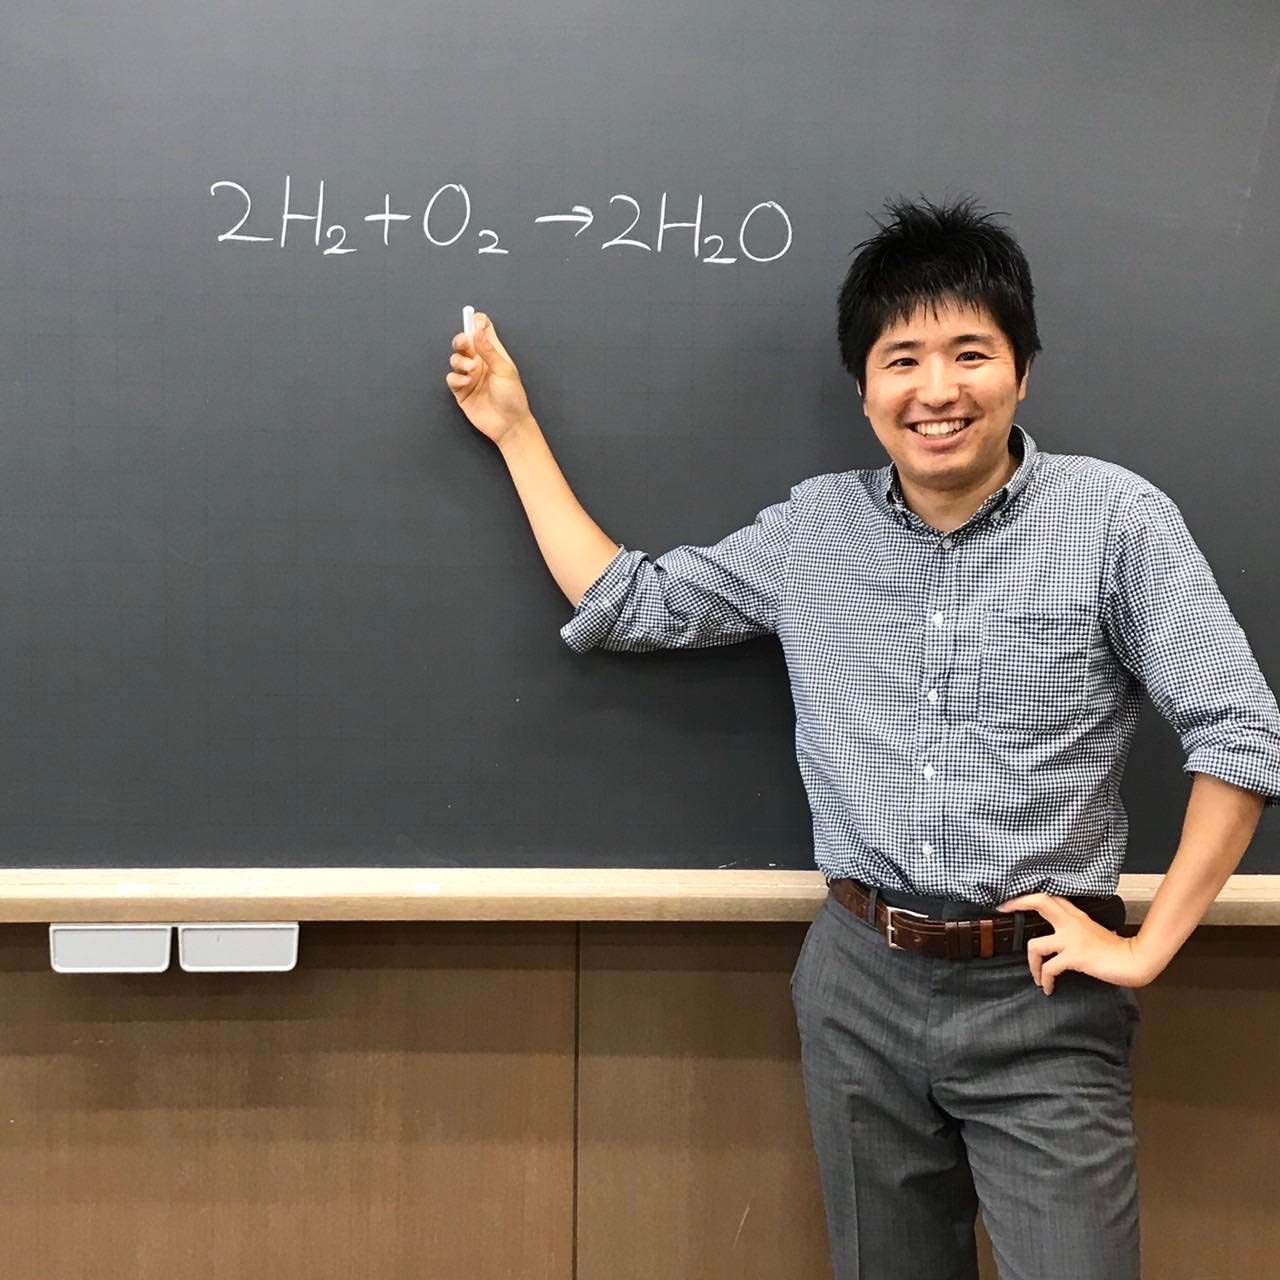 2H₂+O₂→2H₂O